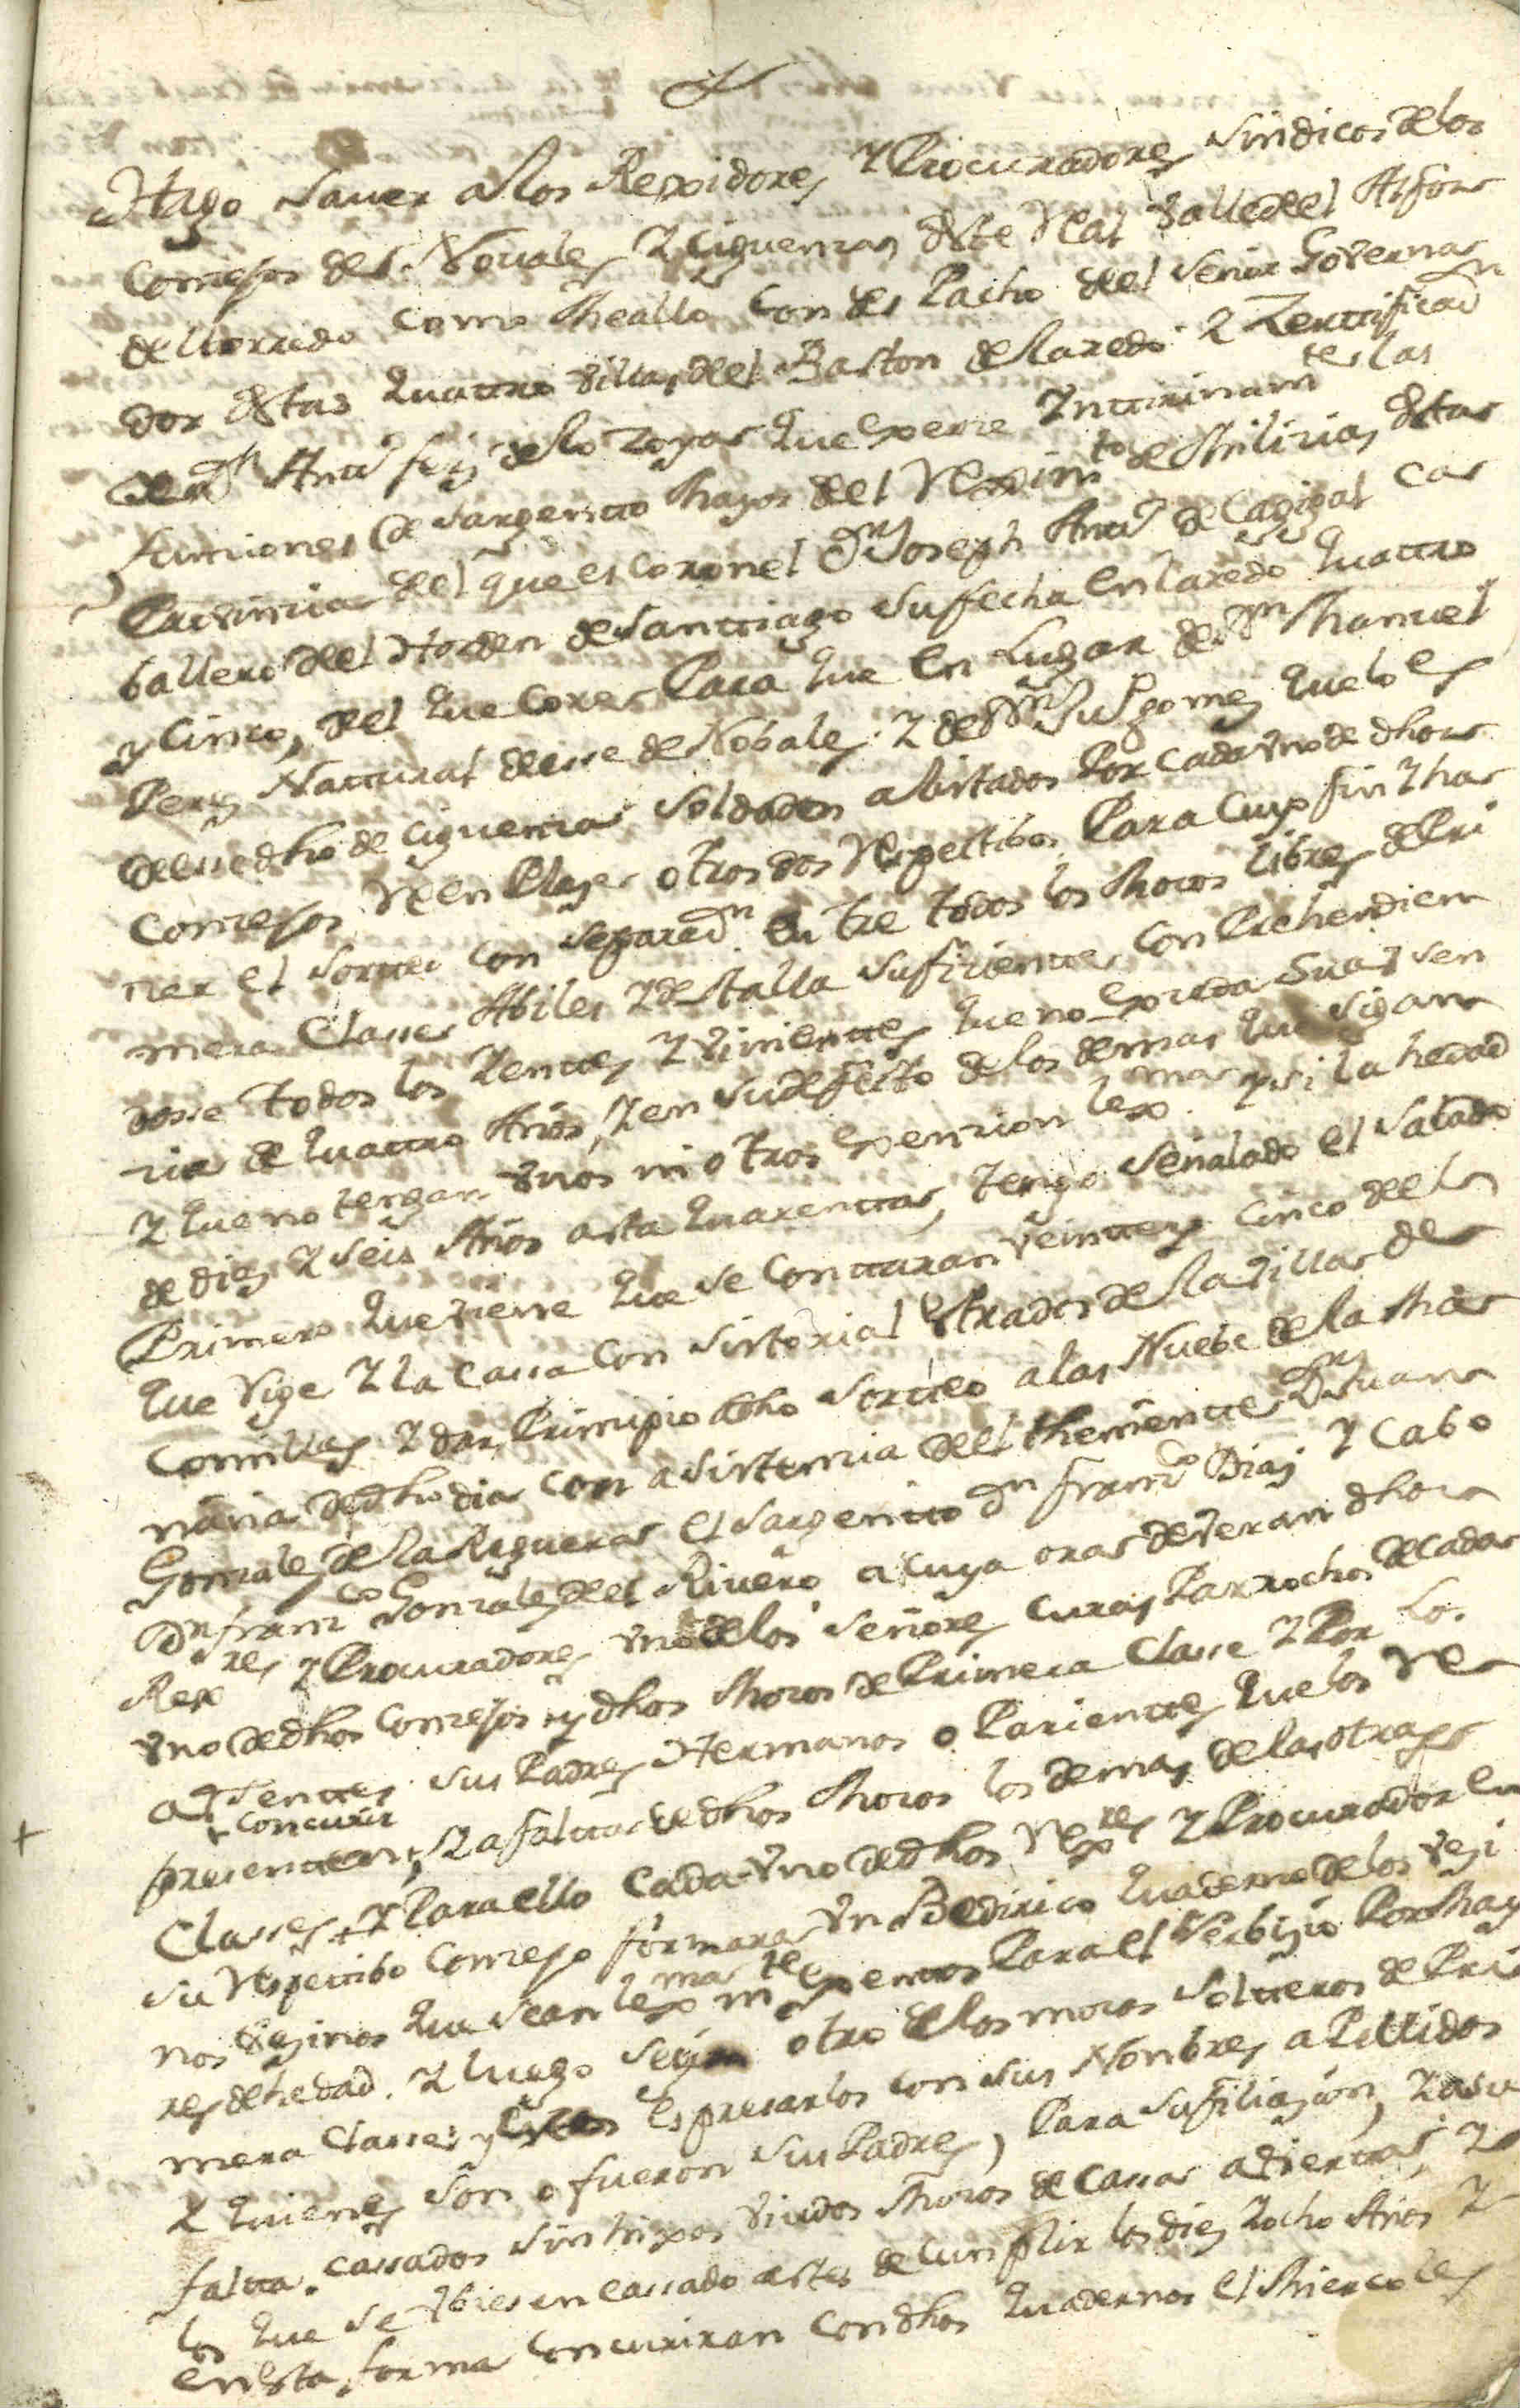 Hago Saver a los Rexidores, y Procuradores Sindicos de los
Conzejos de Novales, y Ciguenza deste Real Valle del Alfoz
de lloredo como me allo con des Pacho del Señor Governa
dor destas quattro Villas del Baston de laredo y Zerttificazn
de Dn Antto frz de lo que exerze Ynttirinamtes las
funziones de Sargentto Mayor del Reximto de Milizias desta
Provinzia del que es Coronel Dn Joseph Antto de Cagigal Ca
ballero del Horden de Santtiago su fecha en laredo quattro
y Cinco, del que Corre Para que en Lugar de Dn Manuel
Perez Nattural desse de Nobales, y de Dn Ju Gomez que lo es
desse dho de Ciguenza Soldados alistados Por cada Uno de dhos
Conzejos reen Plaze otros dos respecttibos, Para Cuyo fin y ha
zer el Sortteo con Separazn en tre todos los Mozos libres de Pri
mera Classe Abiles y de talla Sufizientte ConPrehendien
dosse todos los Zentes, y Vinientes que no exceda Su Ausen
zia de quattro Años, y en su defecto de los demas que Sigan
y que no tengan Unos ni otros exsenzion lex.ma y si la hedad
de diez y seis Años asta quarentta, tengo Señalado el Sabado
Primero que viene que se Conttaran veintte y Cinco del
que Rige y la Cassa Con Sistorial Estrados de la Villa de
Comillas, y dar Prinzipio a dho Sortteo a las Nuebe de la Ma
ñana de dho dia con asistenzia del thenientte Dn Juan
Gonzalez de la Reguera el Sargentto Dn Franzco Diaz y Cabo
Dn franzco Gonzalez del Rivero a cuya ora deveran dhos
Rexres y Procuradores Uno de los Señores Curas Parrochos de cada
Uno de dhos Conzejos y dhos Mozos de Primera Classe y Por los
ausenttes Sus Padres Hermanos o Parienttes que los Re
presentten, + concurir y a faltta de dhos Mozos los demas de las otras
Classes, + y Para ello Cada Uno de dhos Rexres y Procurador en
su respecttibo Conzejo formara Un Beridico quaderno de los vezi
nos vezinos que sean lexmamte exsenttos Para el Serbizio Por May
res de hedad, y luego otro de los mozos Soltteros de Pri
mera Classe y espresarlos con sus Nombres aPellidos
y quienes son o fueron sus Padres, Para su filiazion, y a su
faltta. cassados sin hixos viudos Mozos de Cassa abiertta, y
los que se Vbiesen cassado antes de Cunplir los diez y ocho Años y
en esta forma Concuriran Con dhos quadernos el Miercoles